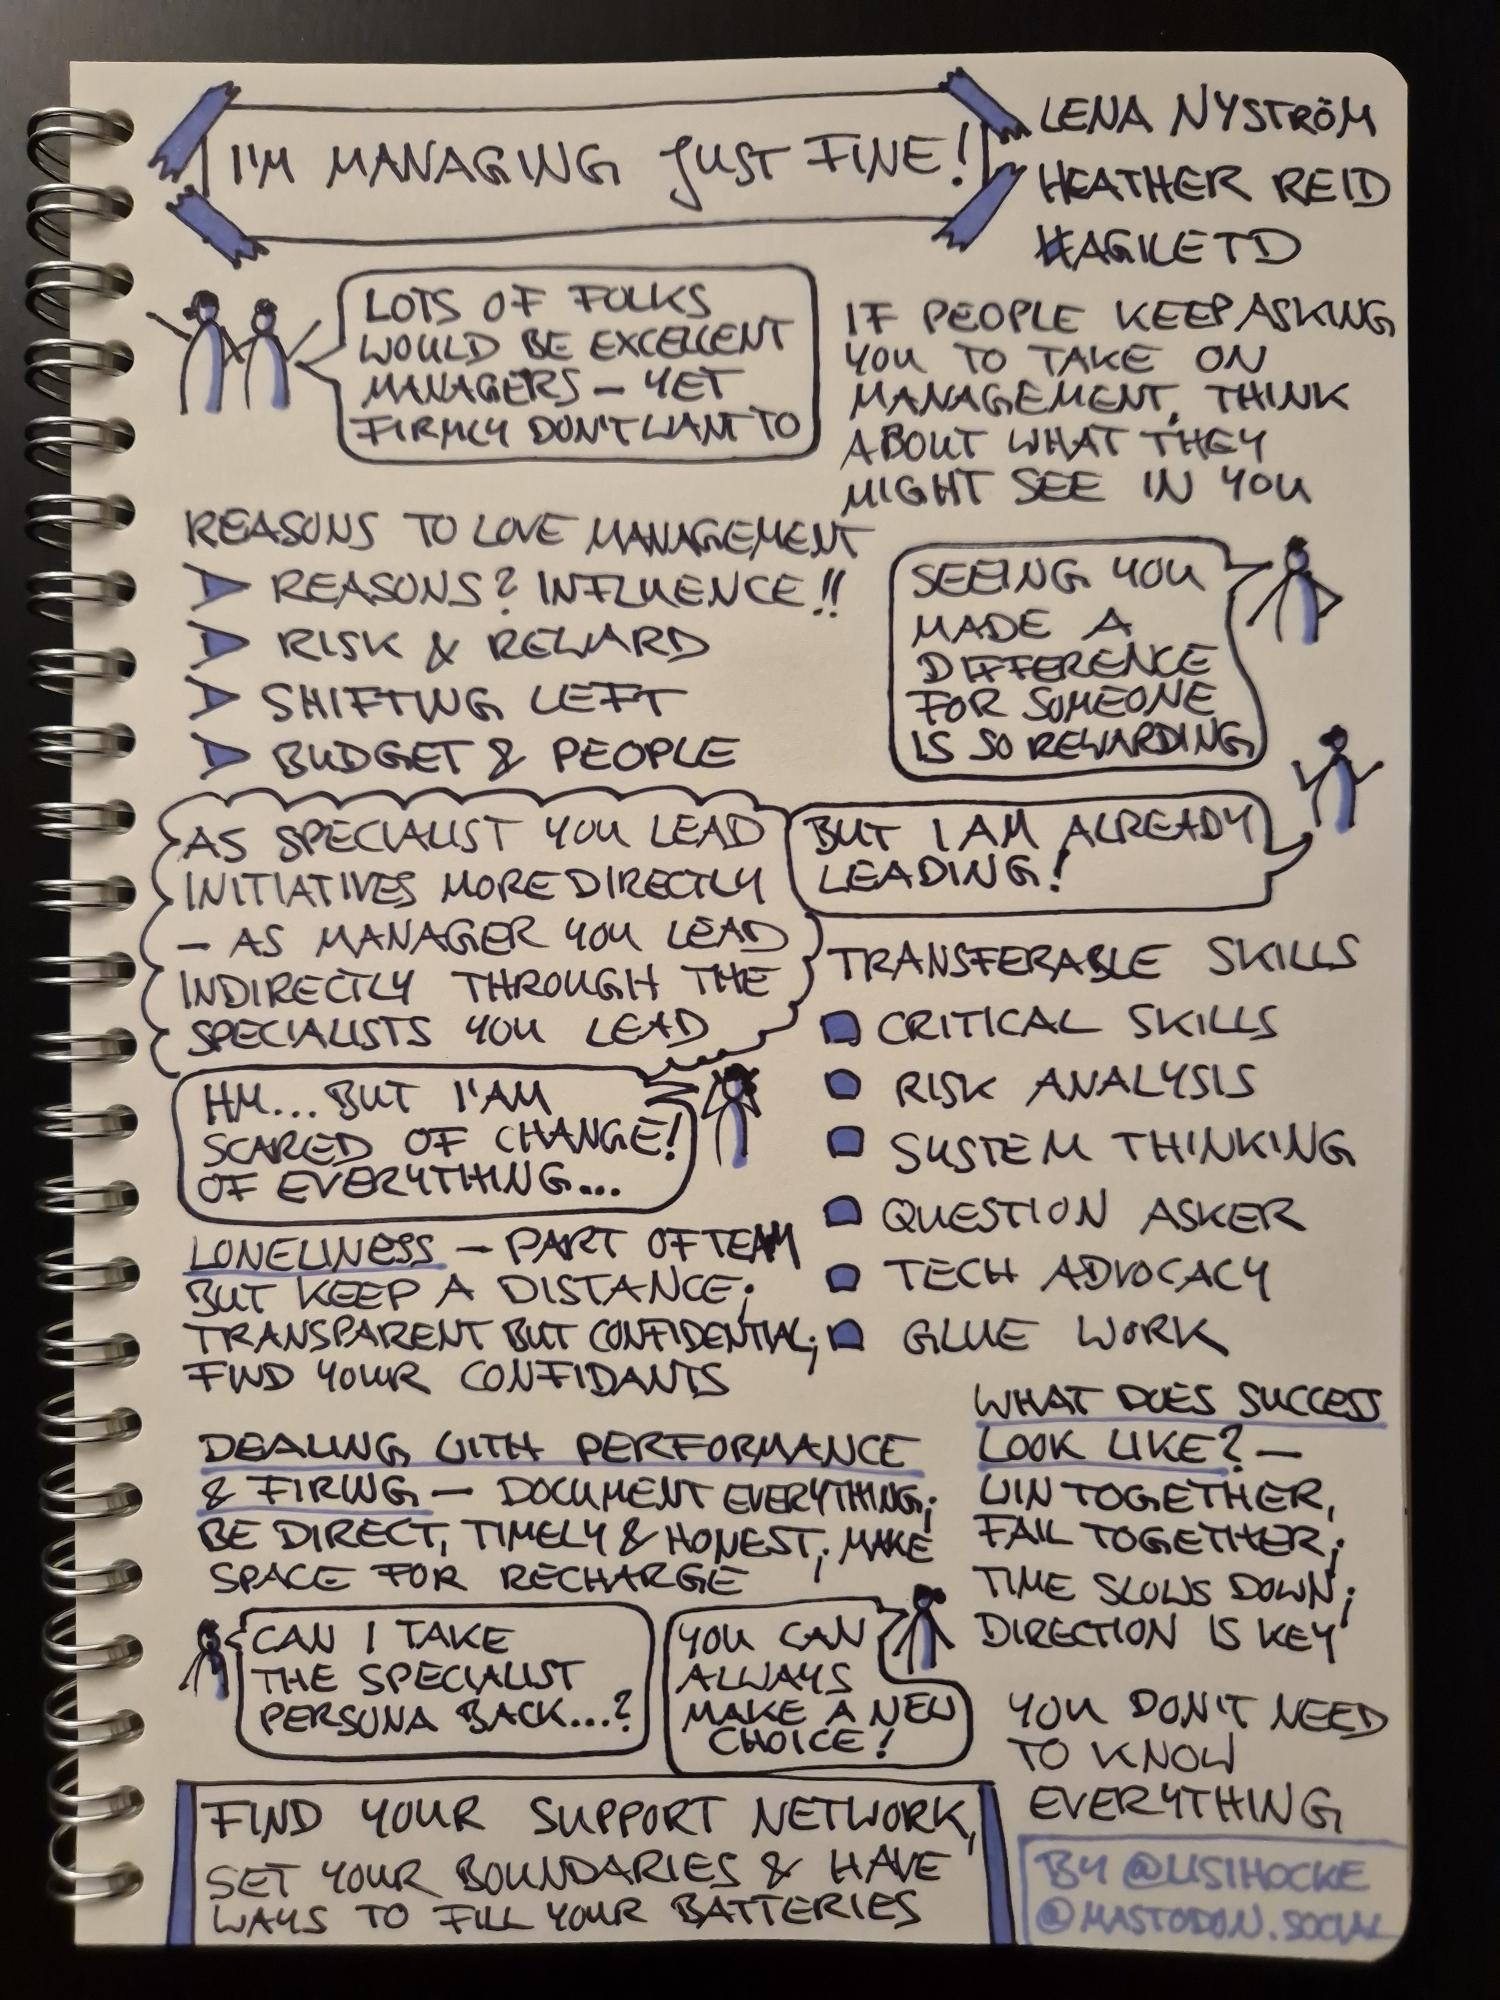 I'M MANAGING JUST FINE!
LENA NYSTRÖM
HEATHER REID
#AGILETD
LOTS OF FOLKS
WOULD BE EXCELLENT
MANAGERS – YET
FIRMLY DON'T WANT TO
IF PEOPLE KEEP ASKING
YOU TO TAKE ON
MANAGEMENT, THINK
ABOUT WHAT THEY
MIGHT SEE IN YOU
REASONS TO LOVE MANAGEMENT
REASONS? INFLUENCE!!
RISK & REWARD
SHIFTING LEFT
BUDGET & PEOPLE
SEEING YOU
MADE A
DIFFERENCE
FOR SOMEONE
IS SO REWARDING
AS SPECIALIST YOU LEAD
INITIATIVES MORE DIRECTLY
– AS MANAGER YOU LEAD
INDIRECTLY THROUGH THE
SPECIALISTS YOU LEAD
BUT I AM ALREADY
LEADING!
HM... BUT I'AM
SCARED OF CHANGE!
OF EVERYTHING...
TRANSFERABLE SKILLS
CRITICAL SKILLS
RISK ANALYSIS
SYSTEM THINKING
QUESTION ASKER
TECH ADVOCACY
GLUE WORK
LONELINESS – PART OF TEAM
BUT KEEP A DISTANCE;
TRANSPARENT BUT CONFIDENTIAL;
FIND YOUR CONFIDANTS
DEALING WITH PERFORMANCE
& FIRING – DOCUMENT EVERYTHING;
BE DIRECT, TIMELY & HONEST; MAKE
SPACE FOR RECHARGE
WHAT DOES SUCCESS
LOOK LIKE? –
WIN TOGETHER,
FAIL TOGETHER;
TIME SLOWS DOWN;
DIRECTION IS KEY
CAN I TAKE
THE SPECIALIST
PERSONA BACK...?
YOU CAN
ALWAYS
MAKE A NEW
CHOICE!
YOU DON'T NEED
TO KNOW
EVERYTHING
FIND YOUR SUPPORT NETWORK,
SET YOUR BOUNDARIES & HAVE
WAYS TO FILL YOUR BATTERIES
BY @LISIHOCKE
@MASTODON.SOCIAL